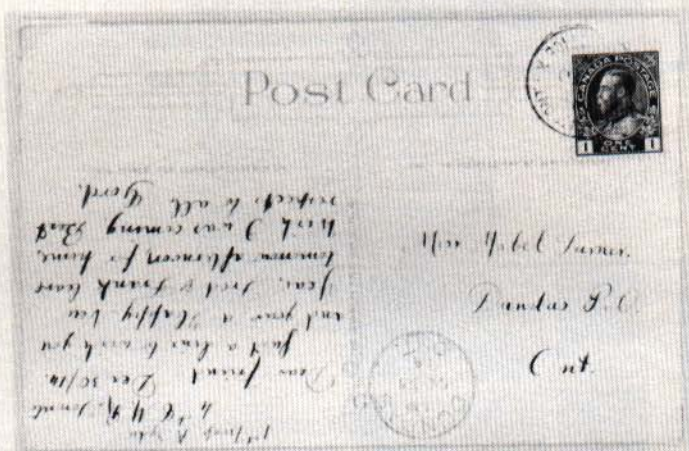 Post Card
CANADA POSTAGE
1 ONE CENT 1
Miss Mabel Turner.
Dundas P.O.
Ont.
Dear friend Dec 30/14.
Just a line to wish you
and your a Happy New
Year, Fred & Frank leave
tomorrow afternoon for home,
wish I was coming Best
respects to all, Gord.